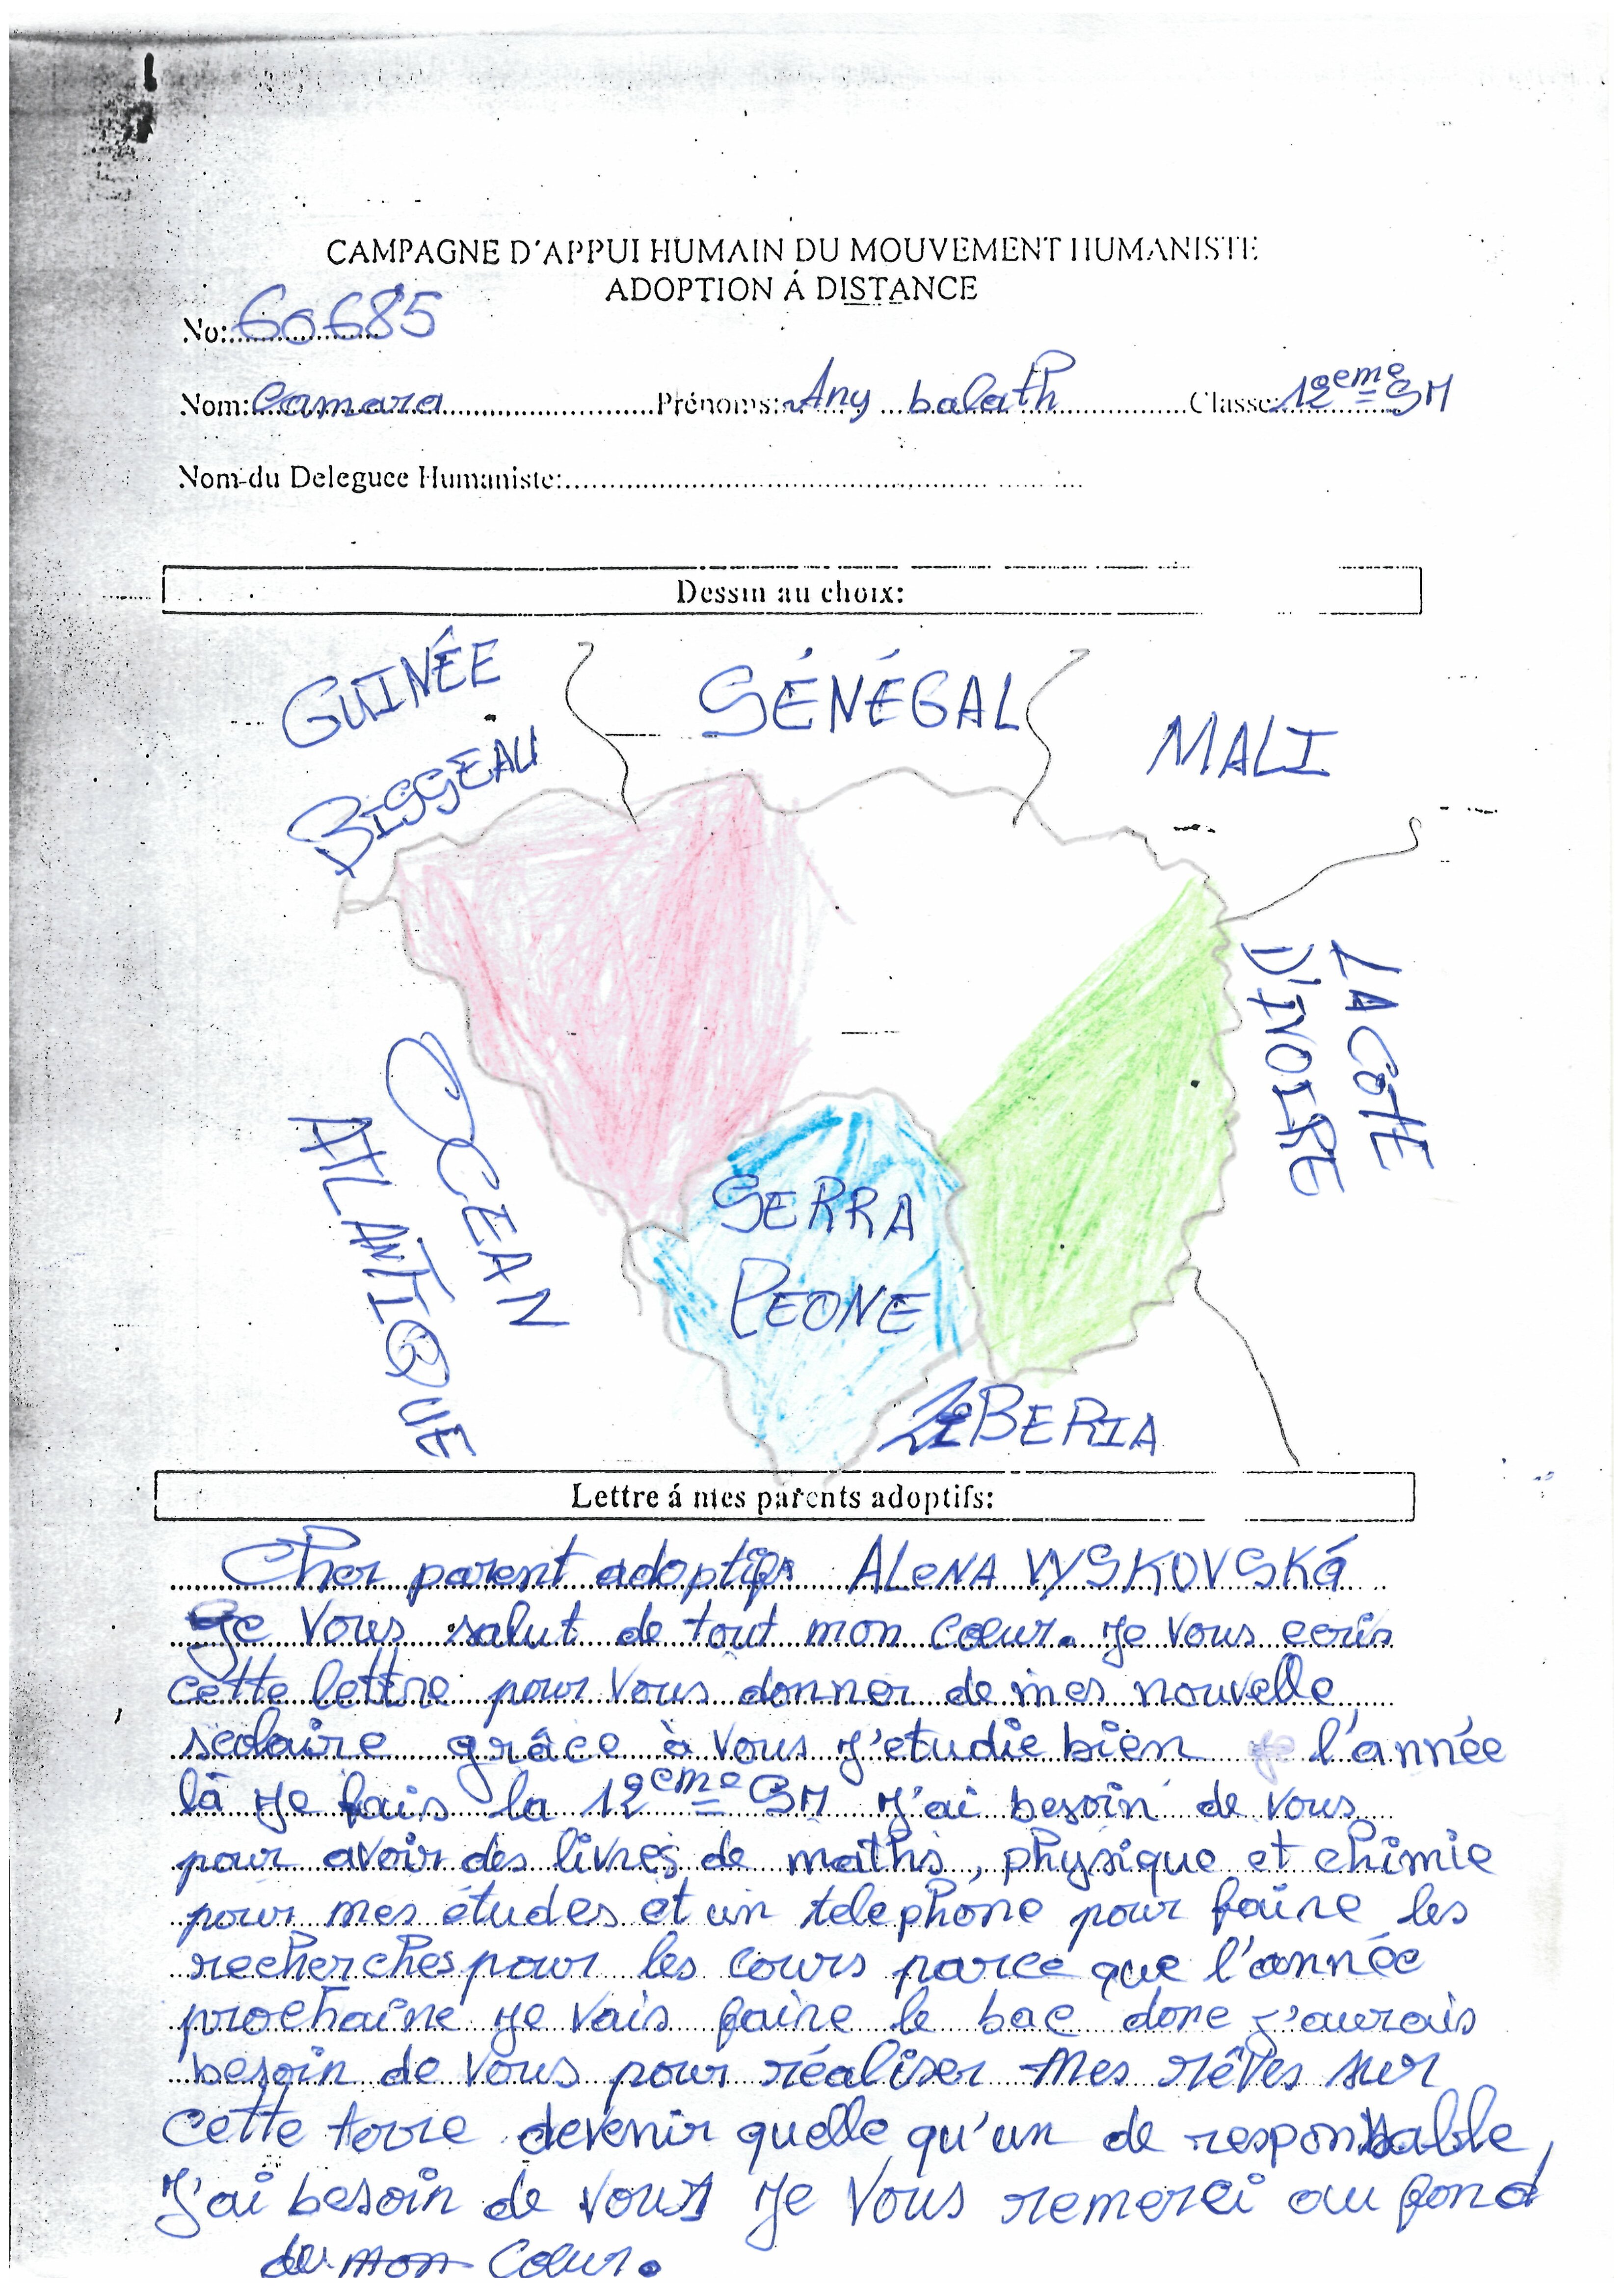 CAMPAGNE D'APPUI HUMAIN DU MOUVEMENT HUMANISTE
ADOPTION Á DISTANCE
No: 60685
Nom: Camara Prénoms: Any balath Classe: 12eme SM
Nom du Deleguee Humaniste:
Dessin au choix:
GUINÉE
BISSEAU
SÉNÉGAL
MALI
LA COTE
D'IVOIRE
OCEAN
ATLANTIQUE
SERRA
LEONE
LIBERIA
Lettre á mes parents adoptifs:
Cher parent adoptifs ALENA VYSKOVSKá
Je vous salut de tout mon cœur. Je vous ecris
cette lettre pour vous donner de mes nouvelle
scolaire grâce à vous j'etudie bien l'année
là je fais la 12eme SM j'ai besoin de vous
pour avoir des livres de maths, physique et chimie
pour mes études et un telephone pour faire les
recherches pour les cours parce que l'année
prochaine je vais faire le bac donc j'aurais
besoin de vous pour réaliser mes rêves sur
cette terre devenir quelle qu'un de responsable,
j'ai besoin de vous je vous remerci au fond
du mon cœur.